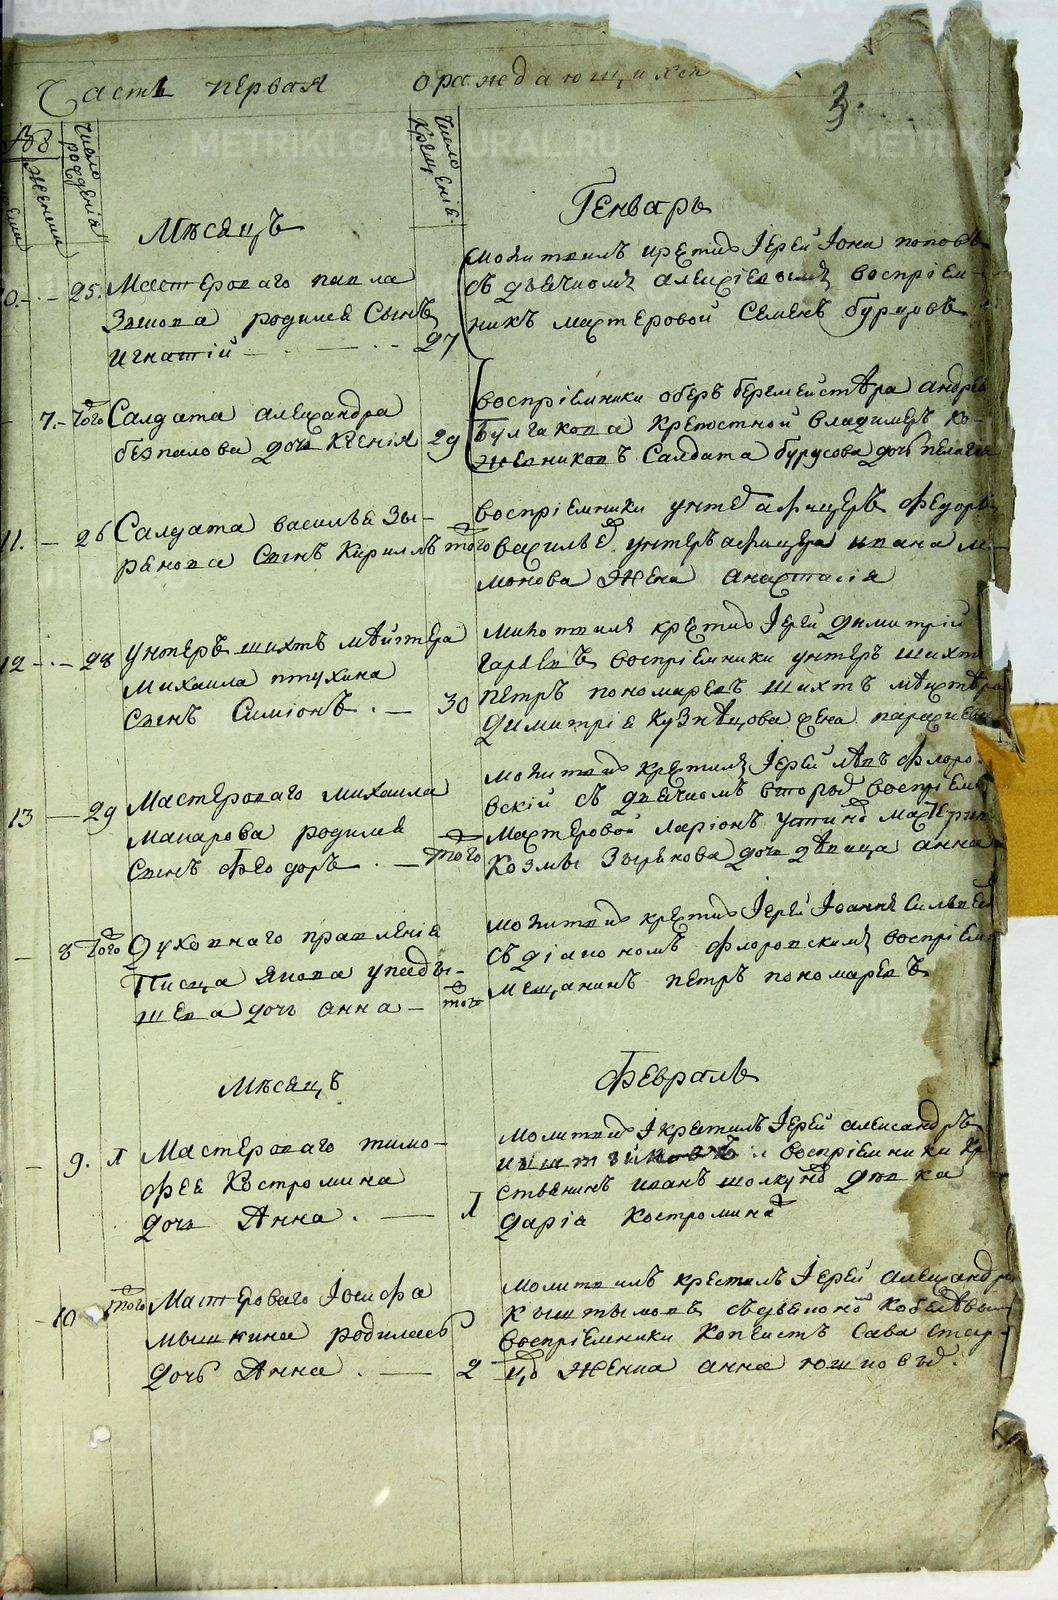 Часть первая о раждающихся
3.
Число рожденiя
Число Крещенiе
женска
Мѣсяцъ Генварь
25. Мастероваго павла
Зыкова родился Сынъ
игнатiй 27
молитвилъ крестилъ Iерей Iона поповъ
съ дьячкомъ алексiевымъ воспрiем-
никъ мастеровой Семенъ бурцовъ
7. того Салдата александра
безпалова дочь Ксенiя 29
воспрiемники оберъ бергмейстера андрея
булгакова крепостной владимеръ ко-
жевниковъ Салдата бурусова дочь пелагея
11. 26 Салдата василья Зы-
рянова Сынъ Кириллъ того
воспрiемники унтеръ афицеръ Федоръ
васильевъ унтеръ афицера ивана ма-
монова Жена анастасiя
12 28 унтеръ шихтъ мѣйстера
михаила птухина
Сынъ Симiонъ. 30
молитвилъ крестилъ Iерей димитрiй
воспрiемники унтеръ шихт
петръ пономаревъ шихтъ мѣистера
димитрiя кузнѣцова жена
13 29 Мастероваго михаила
макарова родился
Сынъ Феодоръ. того
молитвилъ крестилъ Iерей лѣвъ Флоро-
вскiй съ дьячкомъ воспрiем
мастеровой ларiонъ
Козмы Зырянова дочь дѣвица анна
8 того духовнаго правленiя
Писца Якова упады-
шева дочь анна того
молитвилъ крестилъ Iерей Iоаннъ
съ дiакономъ Флоровскимъ воспрiем
мещанинъ петръ пономаревъ
Мѣсяцъ Февраль
9. 1 Мастероваго тимо-
фея Костромина
дочь Анна. 1
молитвилъ Iкрестилъ Iерей александръ
воспрiемники кр
стьянинъ иванъ девка
дарiа Костромина
10 того Мастероваго Iосифа
мышкина родилась
дочь Анна. 2
молитвилъ крестилъ Iерей александръ
воспрiемники Копеистъ Сава
Женка анна